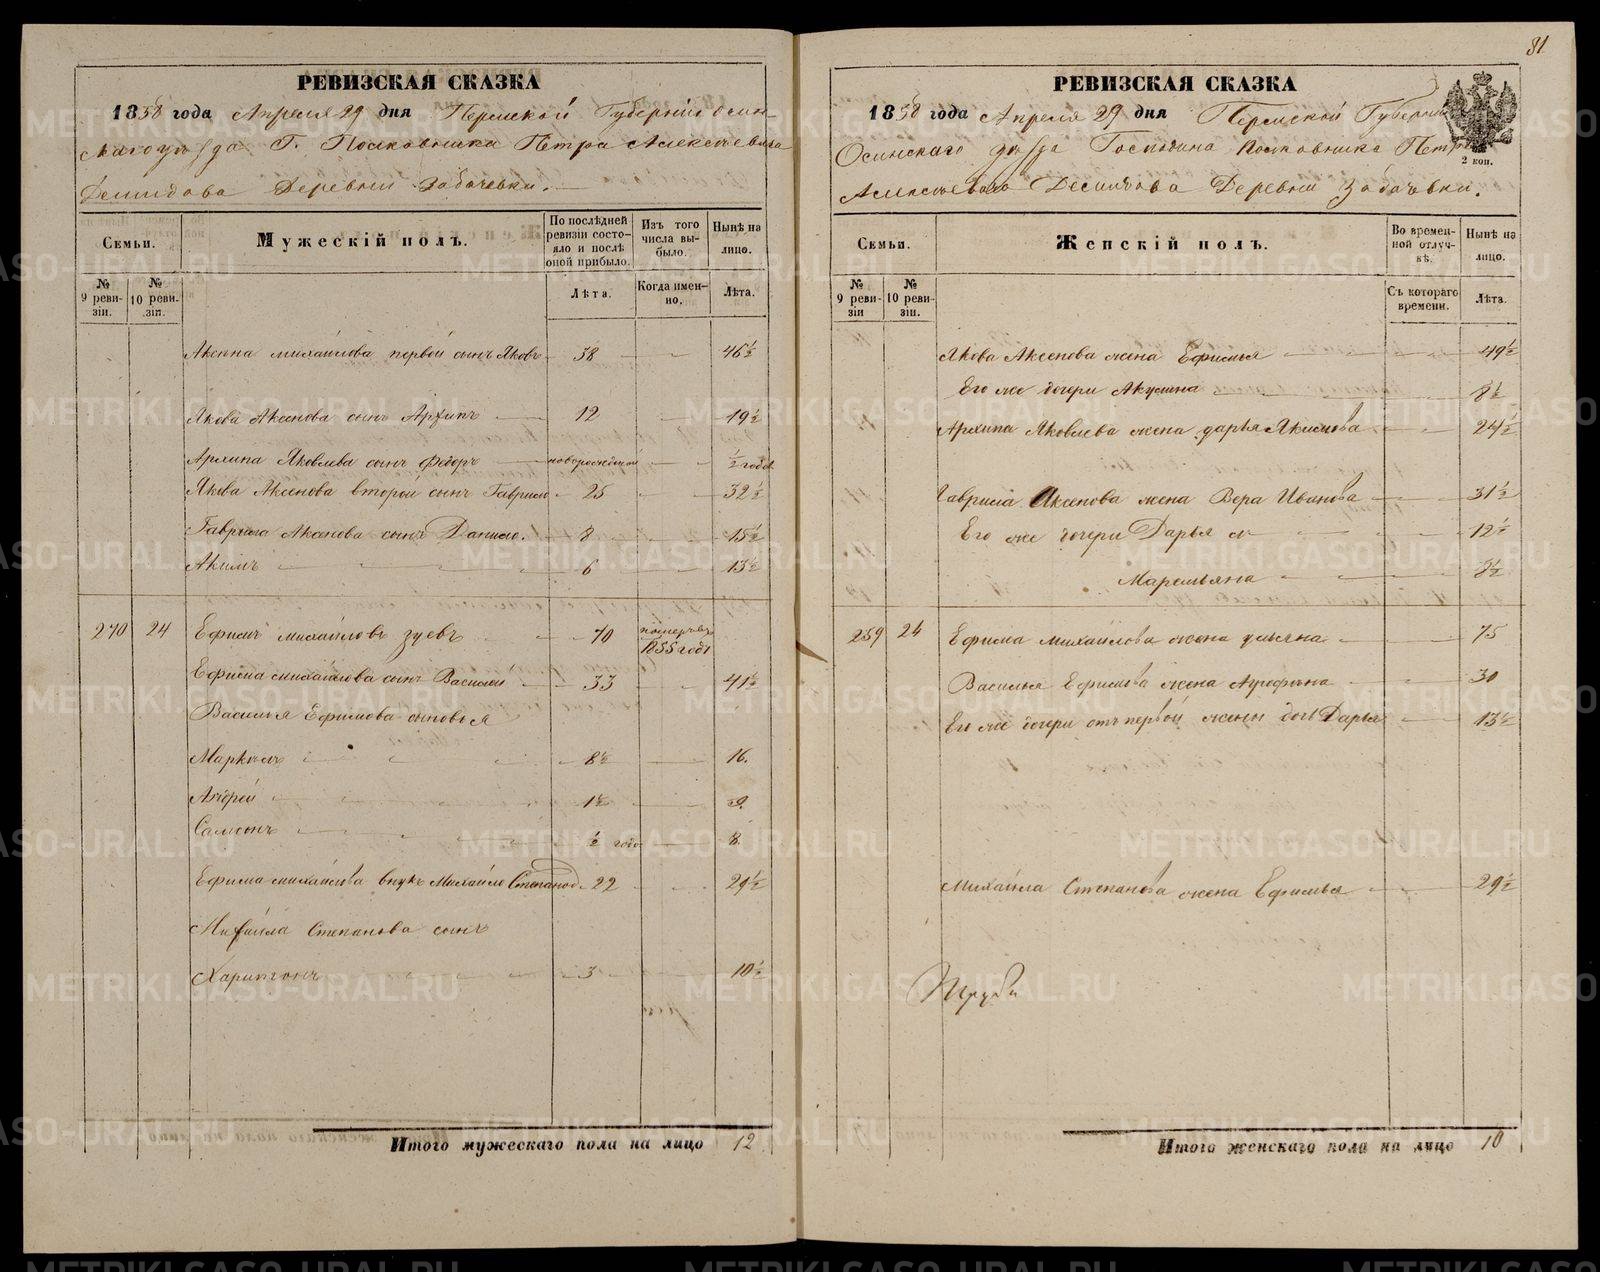 РЕВИЗСКАЯ СКАЗКА
1858 года Апреля 29 дня Пермской Губернии Осин-
скаго уѣзда Г. Полковника Петра Алексѣевича
Демидова Деревни Забачевки.
Семьи.
Мужескій полъ.
По послѣдней ревизіи состояло и послѣ оной прибыло.
Изъ того числа выбыло.
Нынѣ на лицо.
№ 9 ревизіи.
№ 10 ревизіи.
Лѣта.
Когда именно.
Лѣта.
Аксена михайлова первой сынъ Яковъ 38 46½
Якова Аксенова сынъ Архипъ 12 19½
Архипа Яковлева сынъ Федоръ новорожденой ½ года
Якова Аксенова второй сынъ Гаврило 25 32½
Гаврила Аксенова сынъ Данило. 8 15½
Акимъ 6 13½
270 24 Ефимъ михайловъ зуевъ 70 померъ въ 1855 годъ
Ефима михайлова сынъ Василей 33 41½
Василья Ефимова сыновья
Маркелъ 8½ 16.
Андрей 1½ 9.
Самсонъ ½ года 8.
Ефима михайлова внукъ Михайло Степанов 22 29½
Михайла Степанова сынъ
Харитонъ 3 10½
Итого мужескаго пола на лицо 12
81
РЕВИЗСКАЯ СКАЗКА
1858 года Апреля 29 дня Пермской Губернии
2 коп.
Осинскаго уѣзда Господина Полковника Петра
Алексѣевича Демидова Деревни Забачевки.
Семьи.
Женскій полъ.
Во временной отлучкѣ.
Нынѣ на лицо.
№ 9 ревизіи
№ 10 ревизіи.
Съ котораго времени.
Лѣта.
Якова Аксенова жена Ефимья 49½
Его же дочери Акулина 8½
Архипа Яковлева жена дарья Якимова 24½
Гаврила Аксенова жена Вера Иванова 31½
Его же дочери Дарья 12½
Маремьяна 8½
259 24 Ефима михайлова жена ульяна 75
Василья Ефимова жена Агрофена 30
Его же дочери отъ первой жены дочь Дарья 13½
Михайла Степанова жена Ефимья 29½
Итого женскаго пола на лицо 10
METRIKI.GASO-URAL.RU